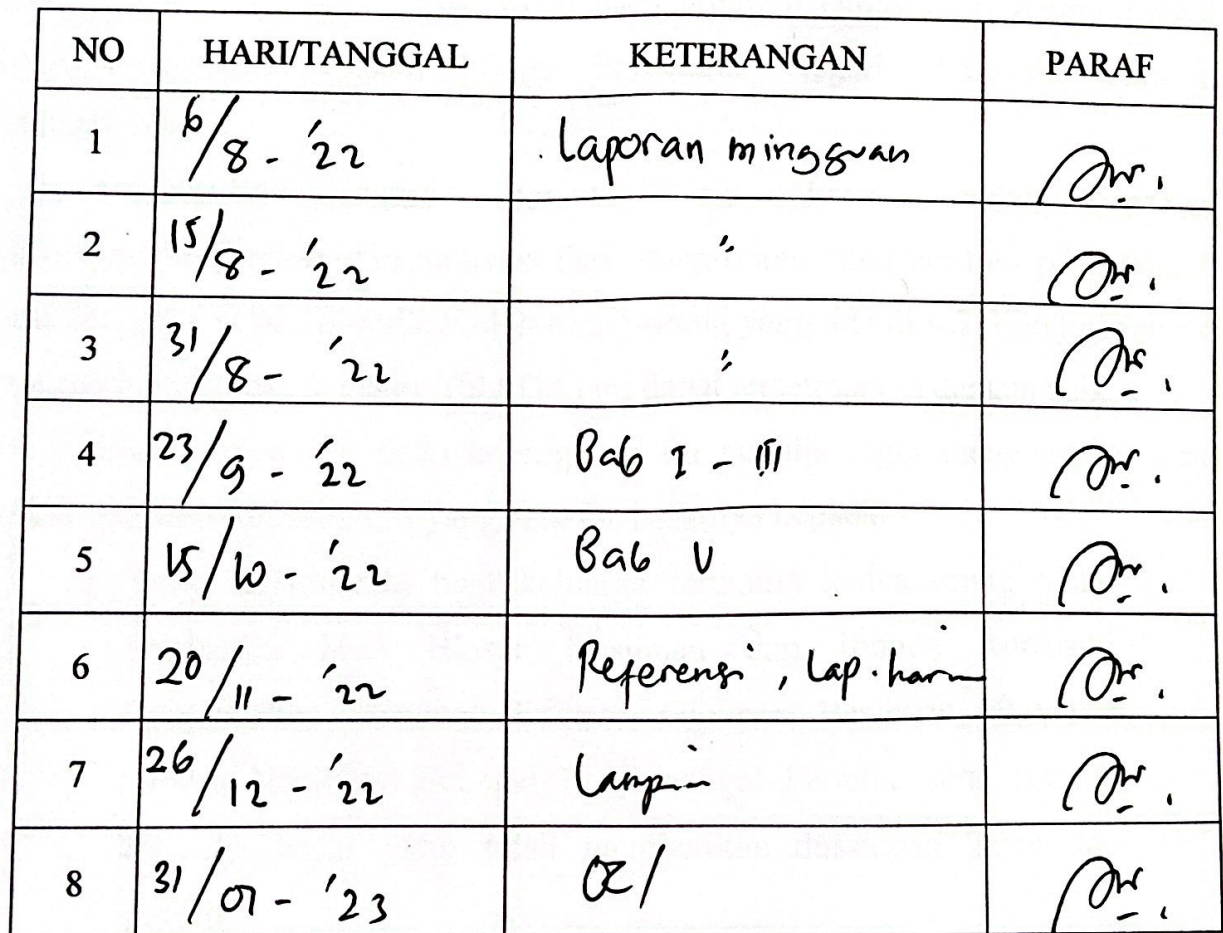 NO HARI/TANGGAL KETERANGAN PARAF
1 6/8 - '22 Laporan mingguan
2 15/8 - '22 "
3 31/8 - '22 "
4 23/9 - '22 Bab I - III
5 15/10 - '22 Bab V
6 20/11 - '22 Referensi, Lap. harian
7 26/12 - '22 Lampiran
8 31/01 - '23